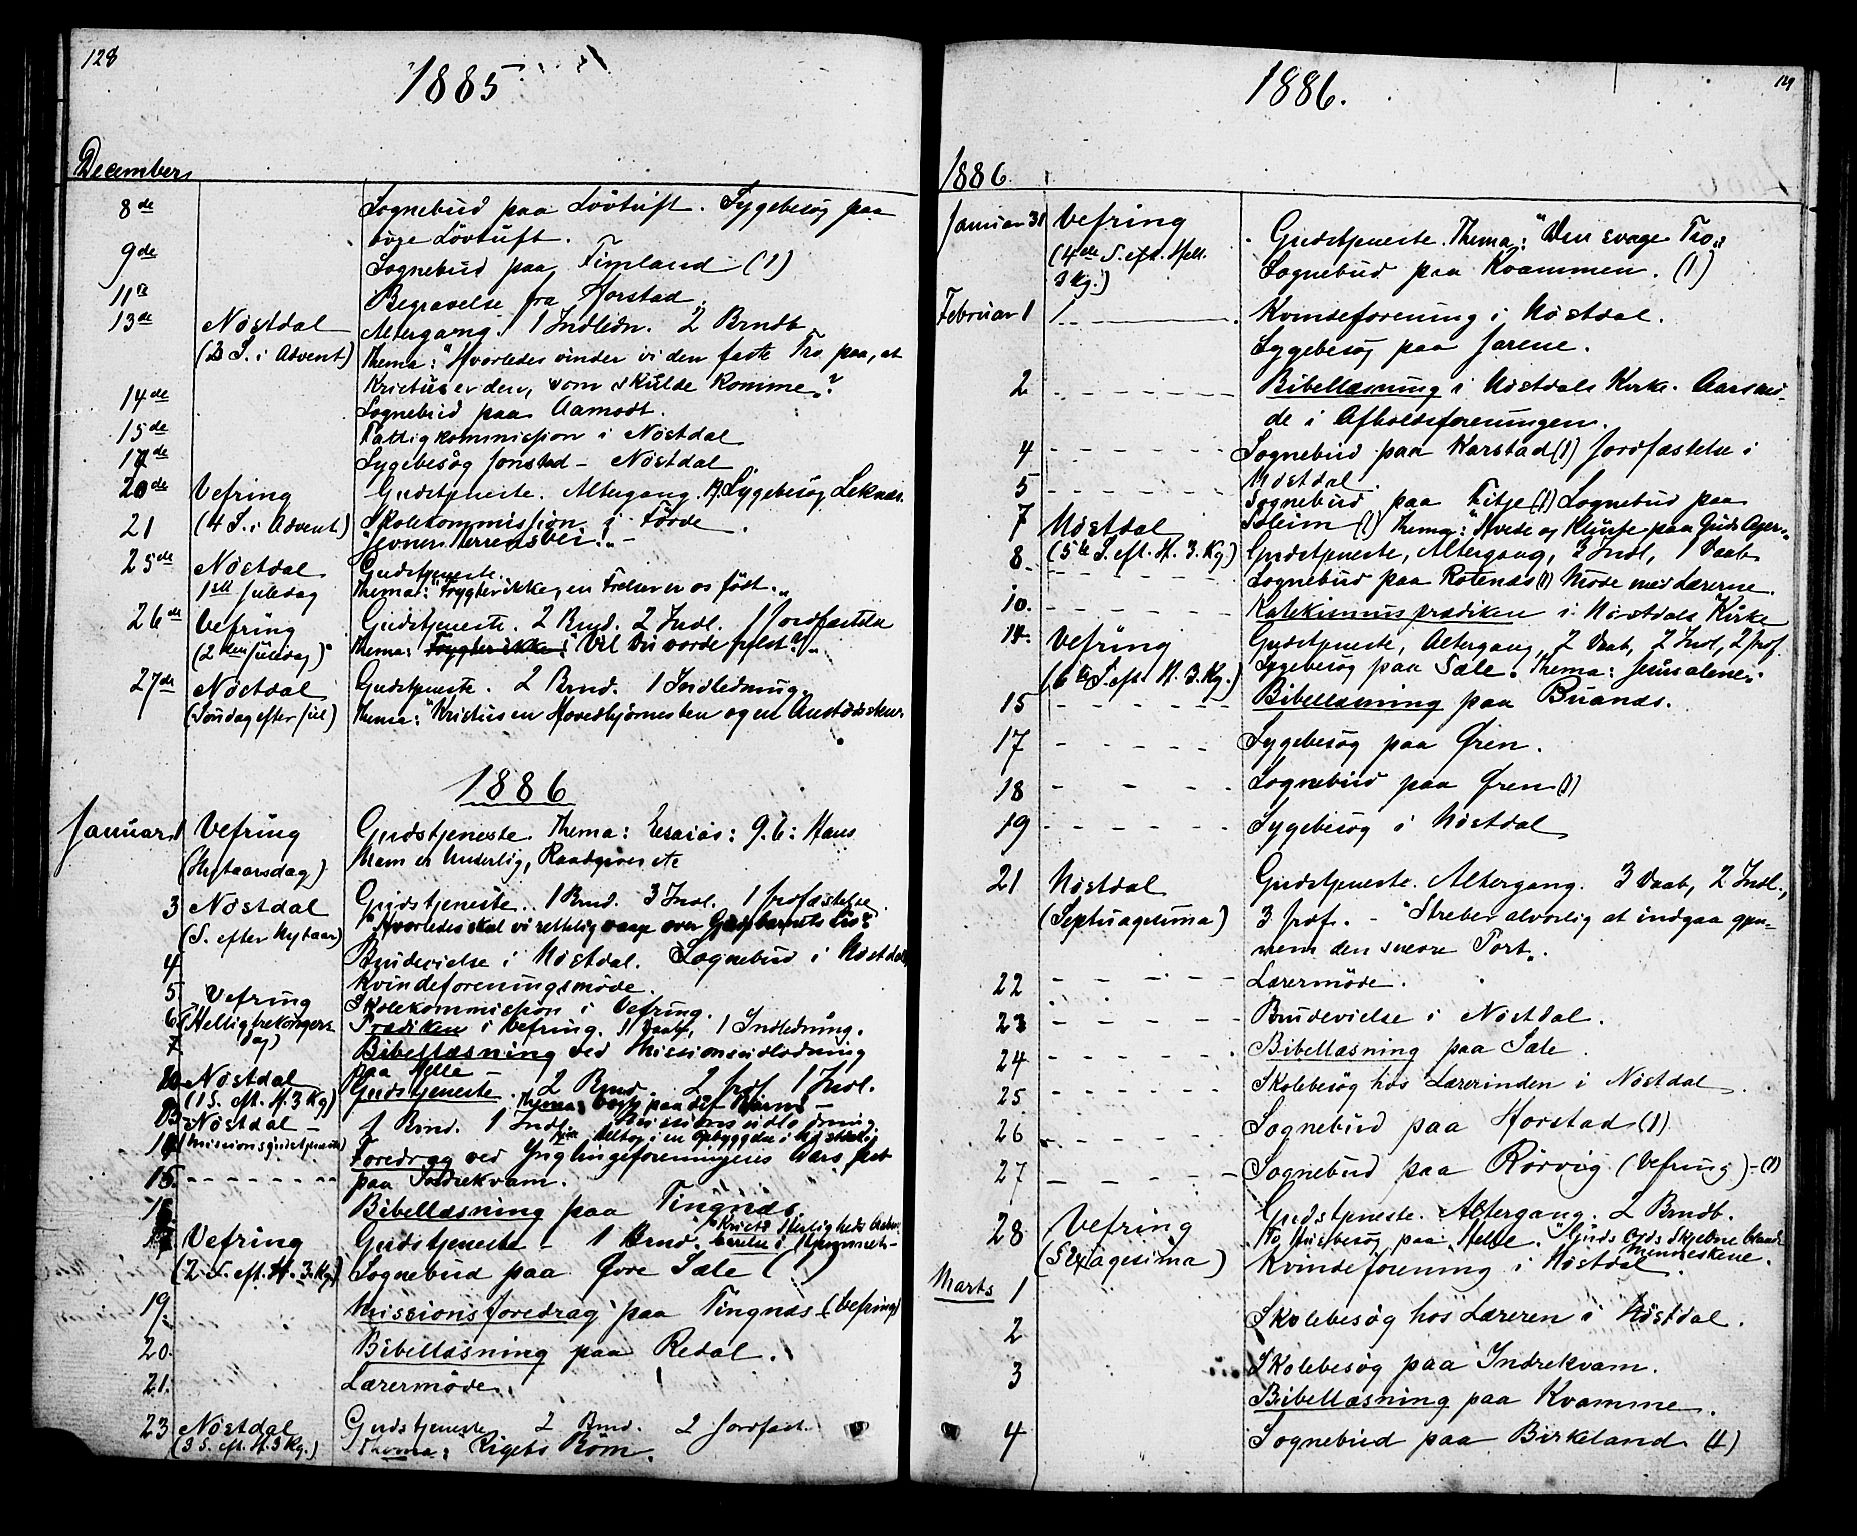 128
1885
December
8de Sognebud paa Lövtuft. Sygebesøg paa
övre Lövtuft.
9de Sognebud paa Fimland (1)
11te Begravelse fra Horstad.
13de Nöstdal Altergang. 1 Indledn. 2 Brndb
(3 S. i Advent) Thema: "Hvorledes vinder vi den faste Tro paa, at
Kristus er den, som skulde komme?
14de Sognebud paa Aamodt.
15de Fattigkommission i Nöstdal
17de Sygebesøg Jonstad - Nöstdal
20de Vefring Gudstjeneste. Altergang. Sygebesøg Leknæs.
21 (4 S. i Advent) Skolekommission i Förde.
"Jevner Herrens Vei!"
25de Nöstdal Gudstjeneste.
1ste Juledag Thema: "Frygter ikke, en Frelser er os født."
26de Vefring Gudstjeneste. 2 Brnd. 2 Indl. 1 Jordfæstelse
(2den Juledag) Thema: Frygter ikke: Vil du vorde frelst?"
27de Nöstdal Gudstjeneste. 2 Brnd. 1 Indledning.
(Söndag efter Jul) Thema: "Kristus en Hovedhjörnesten og en Anstödssten.
1886
Januar 1 Vefring Gudstjeneste. Thema: Esaias: 9.6: Hans
(Nytaarsdag) Navn er Underlig, Raadgiver etc
3 Nöstdal Gudstjeneste. 1 Brnd. 3 Indl. 1 Jordfæstelse.
(S. efter Nytaar) "Hvorledes skal vi rettelig vaage over Gudsbarnets Liv?
4 Brudevielse i Nöstdal. Sognebud i Nöstdal
Kvindeforeningsmöde.
5. Vefring Skolekommission i Vefring.
6 (Helligtrekongers Prædiken i Vefring. 1 Daab, 1 Indledning.
7 dag) Bibellæsning ved Missionsudlodning
paa Helle
10 Nöstdal Gudstjeneste. 2 Brnd. 2 Jordf. 1 Indl.
(1 S. eft. H. 3 Kg)
Nöstdal - 1 Brnd. 1 Indl. Missionsudlodning.
14 Missionsgudstjeneste
Foredrag ved Ynglingeforeningens Aarsfest
15 paa Indrekvam.
Bibellæsning paa Tingnæs.
17 Vefring Gudstjeneste - 1 Brnd.
(2 S. eft. H. 3. Kg.) Sognebud paa Övre Sæle ( )
19. Missionsforedrag paa Tingnæs (Vefring)
20. Bibellæsning paa Redal.
21. Lærermöde.
23 Nöstdal Gudstjeneste 2 Brnd. 2 Jordfæst.
(3 S. eft. H. 3 Kg.) Thema: Rigets Börn.
1886.
129
1886
Januar 31 Vefring Gudstjeneste. Thema: "Den svage Tro."
(4de S. eft. Hell. Sognebud paa Kvammen. (1)
3 Kg.)
Februar 1 Kvindeforening i Nöstdal.
Sygebesøg paa Jarene.
2 Bibellæsning i Nöstdals Kirke. Aarsmö-
de i Afholdsforeningen.
4 Sognebud paa Karstad (1) Jordfæstelse i
Nöstdal.
5 Sognebud paa Fitje (1) Sognebud paa
7 Nöstdal Solheim (1) Thema: "Hvede og Klinte paa Guds Ager."
8. (5te S. eft. H. 3. Kg.) Gudstjeneste, Altergang, 3 Indl, 1 Daab
Sognebud paa Rotenæs (1) Möde med Lærerne.
10. Katekismusprædiken i Nöstdals Kirke
14. Vefring Gudstjeneste, Altergang, 2 Daab, 2 Indl, 2 Jrdf.
(6te S. eft. H. 3. Kg.) Sygebesøg paa Sæle. Thema: Jerusalem.
15 Bibellæsning paa Buanæs.
17 Sygebesøg paa Øren.
18 Sognebud paa Øren (1)
19 Sygebesøg i Nöstdal
21 Nöstdal Gudstjeneste. Altergang. 3 Daab, 2 Indl.,
(Septuagesima) 3 Jrdf. - "Stræber alvorlig at indgaa gjen-
nem den snevre Port".
22 Lærermöde.
23 Brudevielse i Nöstdal.
24 Bibellæsning paa Sæle.
25 Skolebesøg hos Lærerinden i Nöstdal.
26 Sognebud paa Horstad (1)
27 Sognebud paa Rörvig (Vefring) - (1)
28 Vefring Gudstjeneste. Altergang. 2 Brndb.
(Sexagesima) To Husbesøg paa Helle. "Guds Ords Skjebne blandt
Menneskene.
Marts 1 Kvindeforening i Nöstdal
2 Skolebesøg hos Læreren i Nöstdal.
3 Skolebesøg paa Indrekvam.
Bibellæsning paa Kvamme.
4 Sognebud paa Birkeland (1)